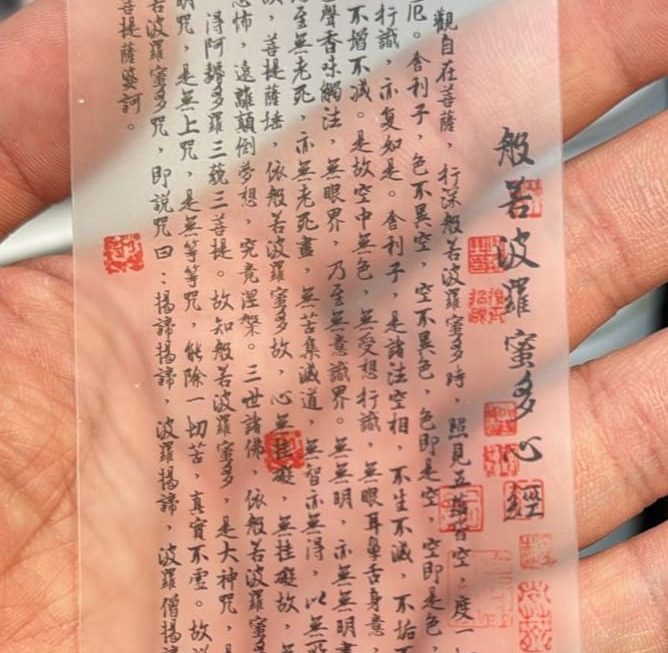 般若波羅蜜多心經
觀自在菩薩，行深般若波羅蜜多時，照見五蘊皆空，度一
厄。舍利子，色不異空，空不異色，色即是空，空即是色，
行識，亦复如是。舍利子，是諸法空相，不生不滅，不垢不
不增不減。是故空中無色，無受想行識，無眼耳鼻舌身意，
聲香味觸法，無眼界，乃至無意識界。無無明，亦無無明盡
至無老死，亦無老死盡，無苦集滅道，無智亦無得，以無
故，菩提薩埵，依般若波羅蜜多故，心無挂礙，無挂礙故，
恐怖，遠離顛倒夢想，究竟涅槃。三世諸佛，依般若波羅蜜
得阿耨多羅三藐三菩提。故知般若波羅蜜多，是大神咒，是
明咒，是無上咒，是無等等咒，能除一切苦，真實不虛。故說
若波羅蜜多咒，即説咒曰：揭諦揭諦，波羅揭諦，波羅僧揭諦
菩提薩婆訶。